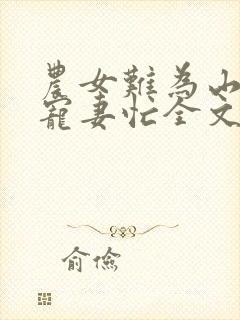 農女難為山
寵妻忙全文
俞儉